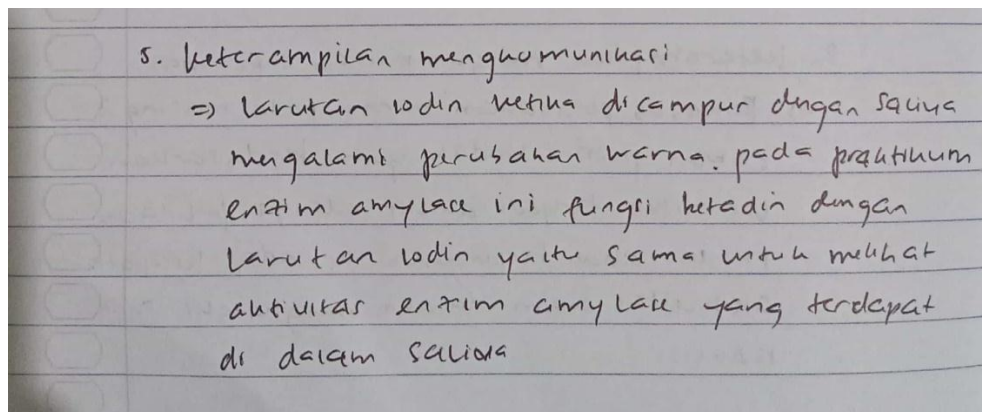 5. keterampilan mengkomunikasi
=> larutan iodin ketika dicampur dengan saliva
mengalami perubahan warna. pada praktikum
enzim amylase ini fungsi betadin dengan
larutan iodin yaitu sama untuk melihat
aktivitas enzim amylase yang terdapat
di dalam saliva